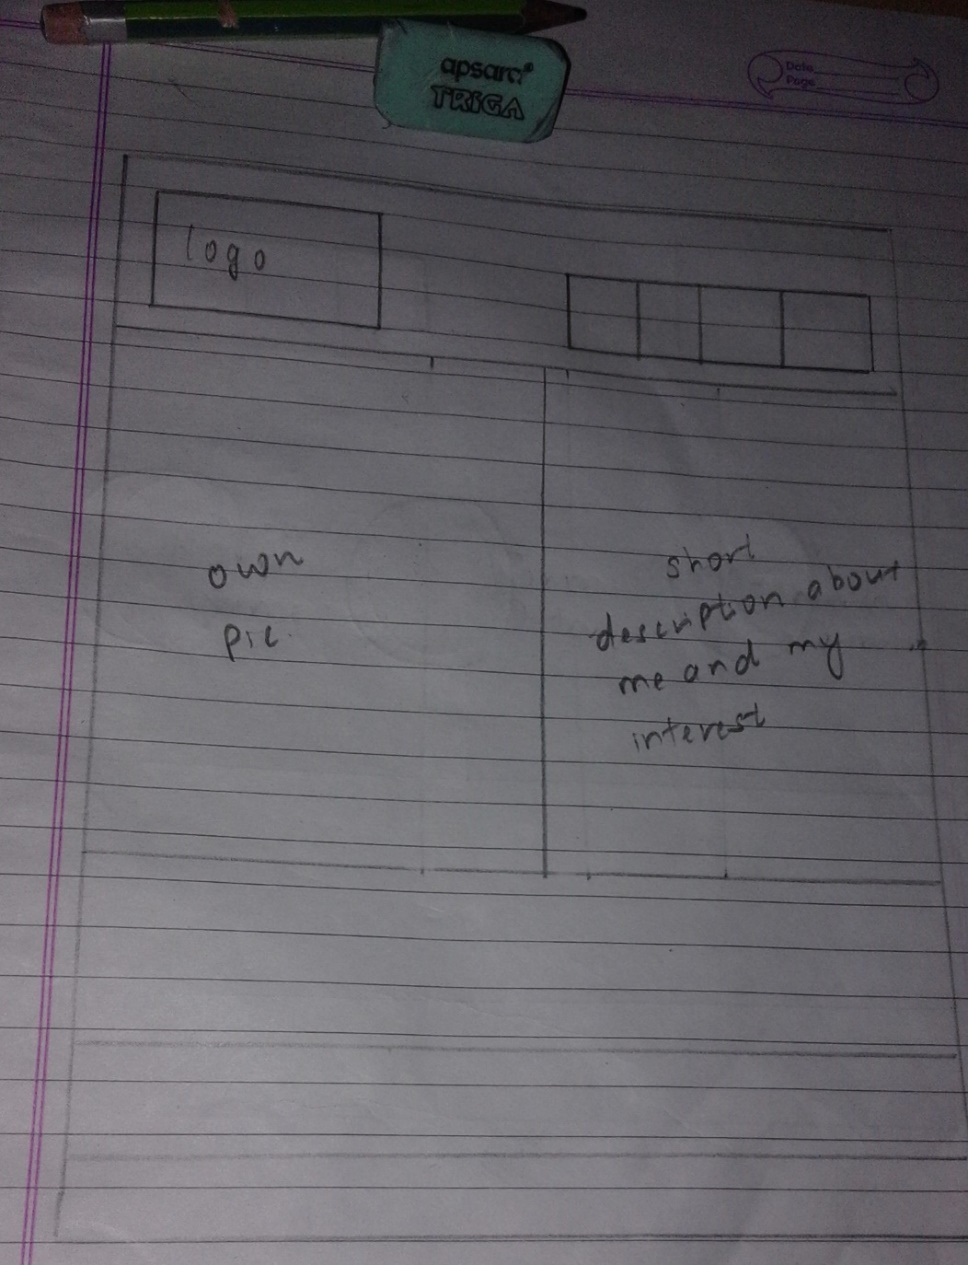 apsara®
TRIGA
Date
Page
logo
own
pic.
short
description about
me and my
interest